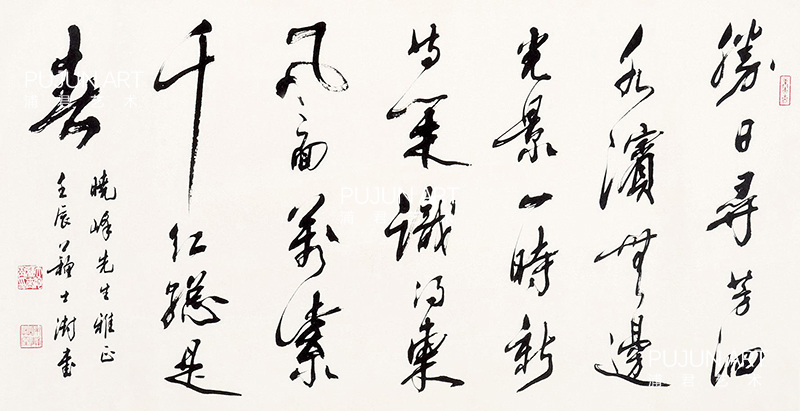 勝日尋芳泗
水濱無邊
光景一時新
等閒識得東
風面萬紫
千紅總是
春
曉峰先生雅正
壬辰蘇士澍書
PUJUN ART
浦君艺术
PUJUN ART
浦君艺术
PUJUN ART
浦君艺术